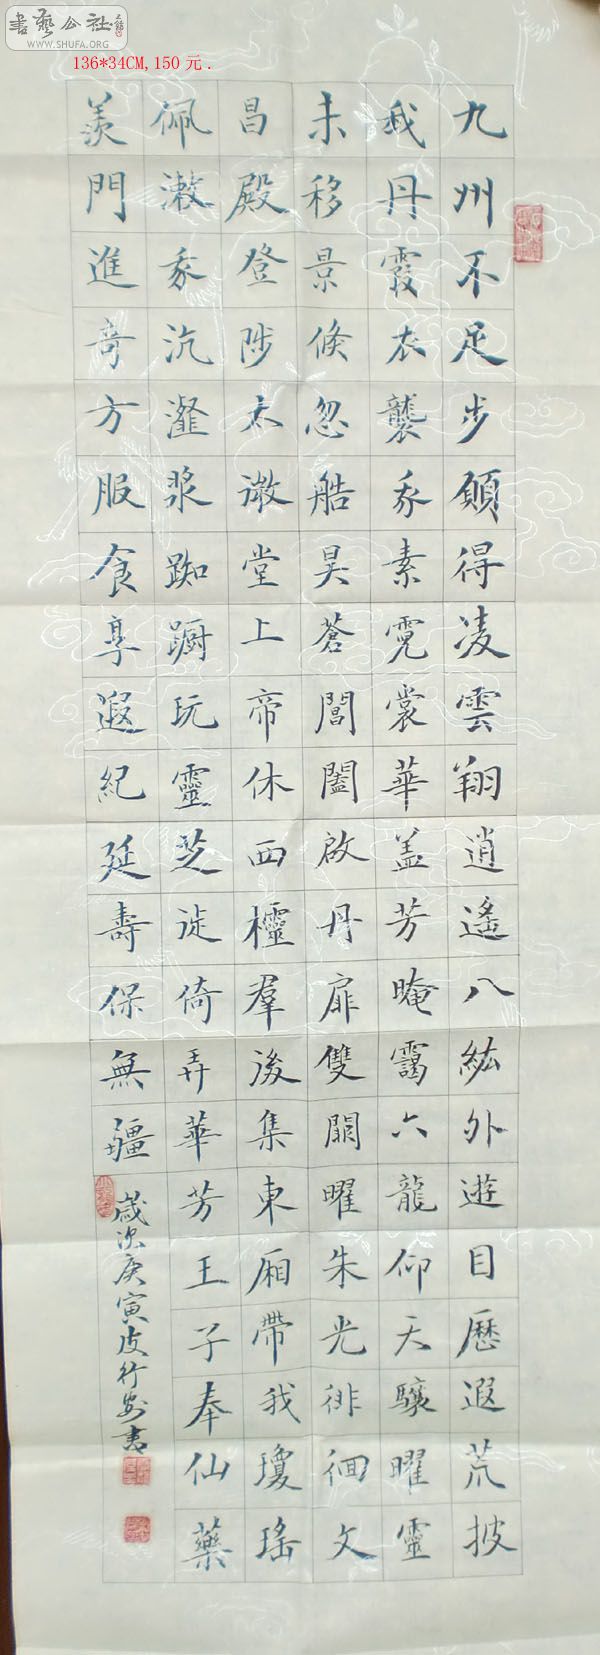 書藝公社
WWW.SHUFA.ORG
136*34CM,150元.
九州不足步願得凌雲翔逍遙八紘外遊目歷遐荒披
我丹霞衣襲我素霓裳華盖芳晻靄六龍仰天驤曜靈
未移景倏忽艁昊蒼閶闔啟丹扉雙闕曜朱光徘徊文
昌殿登陟太微堂上帝休西櫺羣後集東厢帶我瓊瑤
佩漱我沆瀣漿踟躕玩靈芝徙倚弄華芳王子奉仙藥
羨門進奇方服食享遐紀延壽保無疆
歲次庚寅皮行書